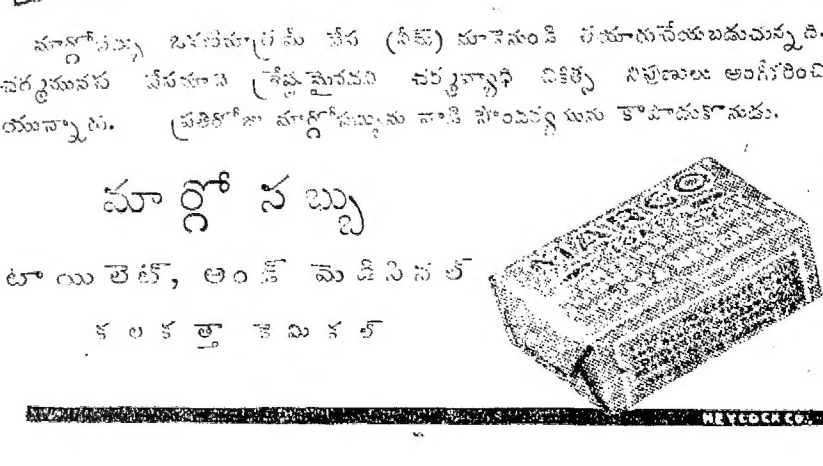 మార్గోసబ్బు వేప (నీమ్) నూనెనుండి తయారుచేయబడుచున్నది.
చర్మమునకు వేపనూనె శ్రేష్ఠమైనదని చర్మవ్యాధి చికిత్స నిపుణులు అంగీకరించి
యున్నారు. ప్రతిరోజు మార్గోసబ్బును వాడి సౌందర్యమును కాపాడుకొనుడు.
మార్గో సబ్బు
టాయిలెట్, అండ్ మెడిసినల్
కలకత్తా కెమికల్
MARGO
HEYLOCK CO.